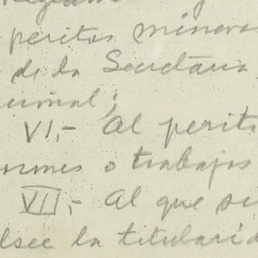 peritos mineros
de la Secretaria
VI,- Al perito
o trabajos
VII,- Al que si
la titularid